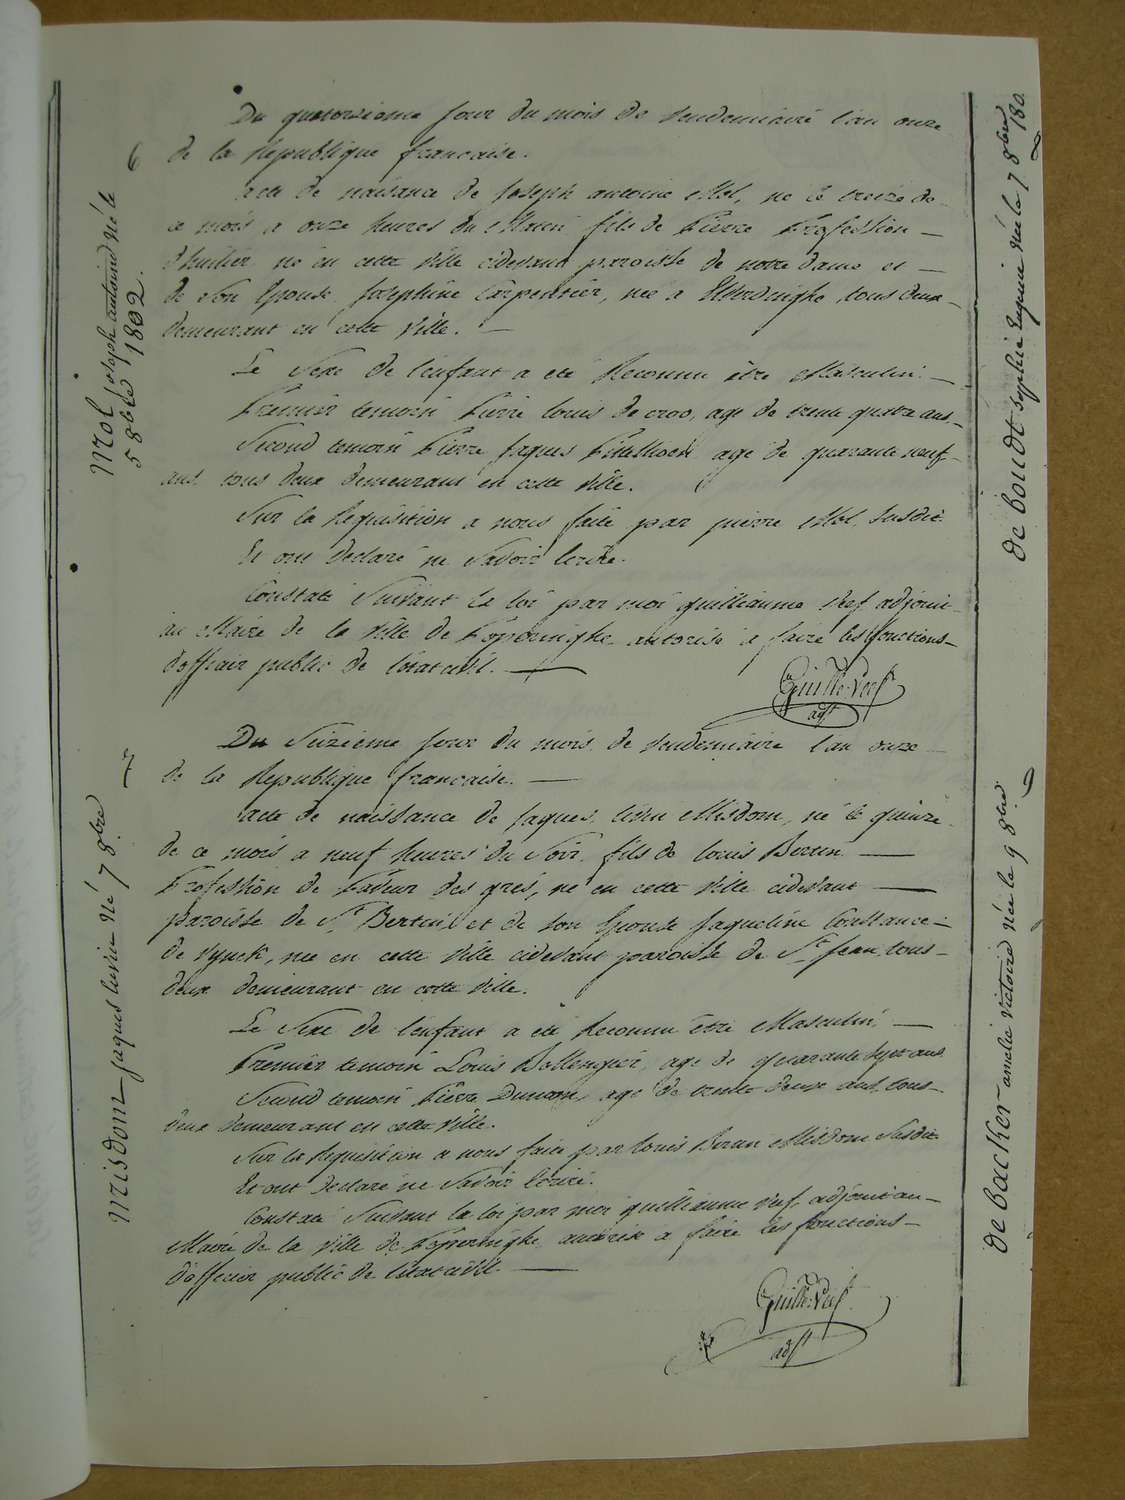 6
Mol joseph antoine né le
5 8bre 1802.
Du quatorsieme jour du mois de vendemiaire l'an onze
de la Republique francaise.
acte de naisance de Joseph antoine Mol, né le treize de
ce mois a onze heures du Matin fils de Pierre Profession —
d'huilier né en cette ville cidevant paroisse de notre dame et —
de son Epouse Josephine Carpentier, née a Elverdinghe, tous deux
demeurant en cette ville. —
Le Sexe de l'enfant a eté Reconnu être Masculin. —
Premier temoin Pierre louis de croo, age de trente quatre ans.
Second temoin Pierre Jaques agé de quarante neuf
ans, tous deux demeurant en cette ville.
Sur la Requisition a nous faite par pierre Mol, susdit
Et ont declaré ne Savoir Ecrire.
Constaté Suivant la loi par moi guilliaume adjoint
au Maire de la ville de Poperinghe autorisé a faire les fonctions
d'officier public de l'état civil. —
adjt
7
Misdom jaques livin Né 7 8bre
Du Seizieme jour du mois de vendemiaire l'an onze
de la Republique francaise. —
acte de naissance de Jaques Misdom, né le quinze
de ce mois a neuf heures du Soir, fils de louis Bertin —
Profession de Paveur des grés, né en cette ville cidevant —
paroisse de St. Bertin, et de son Epouse Jaqueline Constance
de vynck, née en cette ville cidevant paroisse de St. Jean, tous
deux demeurant en cette ville.
Le Sexe de l'enfant a eté Reconnu être Masculin. —
Premier temoin Louis Bollengier, agé de quarante sept ans
Second temoin Pierre agé de trente deux ans, tous
deux demeurant en cette ville.
Sur la Requisition a nous faite par louis Bertin Misdom Susdit
Et ont declaré ne Savoir Ecrire.
Constaté Suivant la loi par moi guilliaume adjoint au
Maire de la ville de Poperinghe autorisé a faire les fonctions
d'officier public de l'état civil. —
adjt
de boudt née le 7 8bre 180
de backer amelie victoire née le 9 8bre